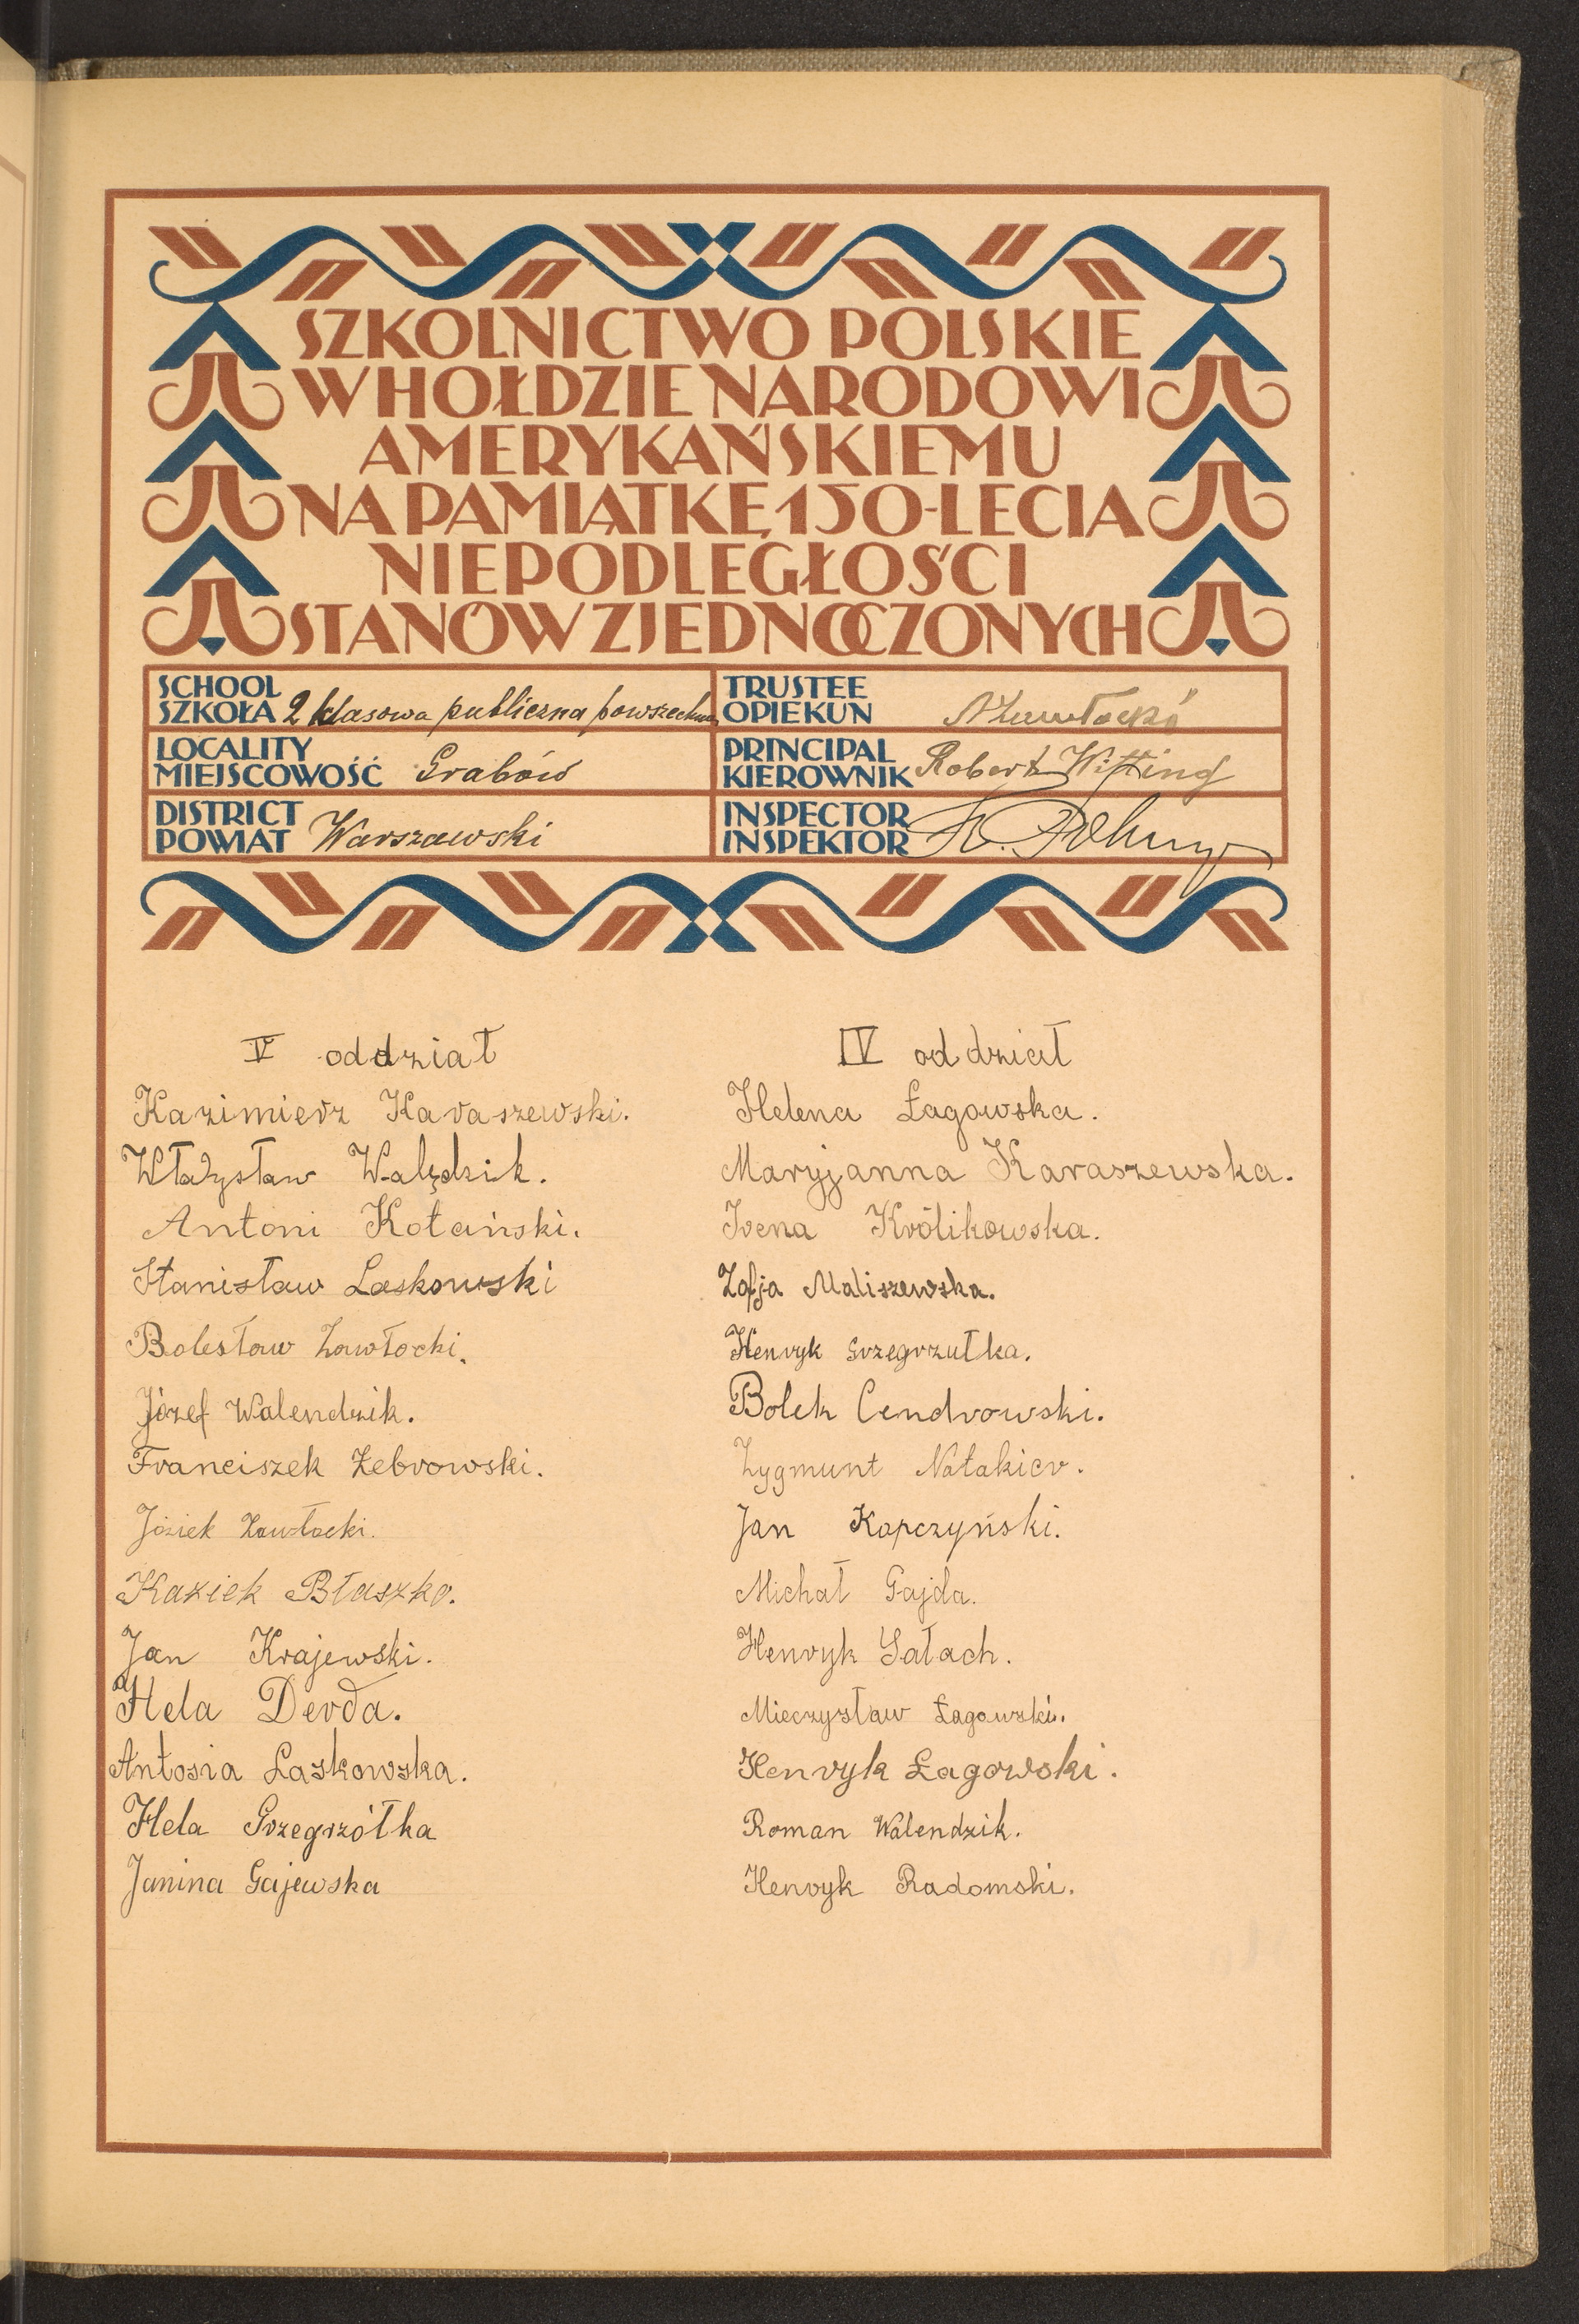 SZKOLNICTWO POLSKIE
W HOŁDZIE NARODOWI
AMERYKAŃSKIEMU
NA PAMIĄTKĘ 150-LECIA
NIEPODLEGŁOŚCI
STANÓW ZJEDNOCZONYCH
SCHOOL
SZKOŁA 2 klasowa publiczna powszechna
LOCALITY
MIEJSCOWOŚĆ Grabów
DISTRICT
POWIAT Warszawski
TRUSTEE
OPIEKUN
PRINCIPAL
KIEROWNIK Robert Witting
INSPECTOR
INSPEKTOR
V oddział
Kazimierz Karaszewski.
Władysław Walędzik.
Antoni Kotański.
Stanisław Laskowski
Bolesław Zawłocki.
Józef Walendzik.
Franciszek Żebrowski.
Józiek Zawłocki.
Kaziek Błaszko.
Jan Krajewski.
Hela Derda.
Antosia Laskowska.
Hela Grzegrzółka
Janina Gajewska
IV oddział
Helena Łagowska.
Maryjanna Karaszewska.
Irena Królikowska.
Zofja Maliszewska.
Henryk Grzegrzułka.
Bolek Cendrowski.
Zygmunt Natakier.
Jan Kopczyński.
Michał Gajda.
Henryk Sałach.
Mieczysław Łagowski.
Henryk Łagowski.
Roman Walendzik.
Henryk Radomski.